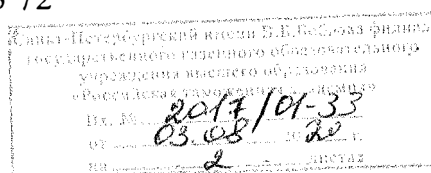 Санкт-Петербургский имени В.Б.Бобкова филиал
государственного казенного образовательного
учреждения высшего образования
«Российская таможенная академия»
Вх. № 2017/01-33
от 03.08 2020 г.
на 2 листах